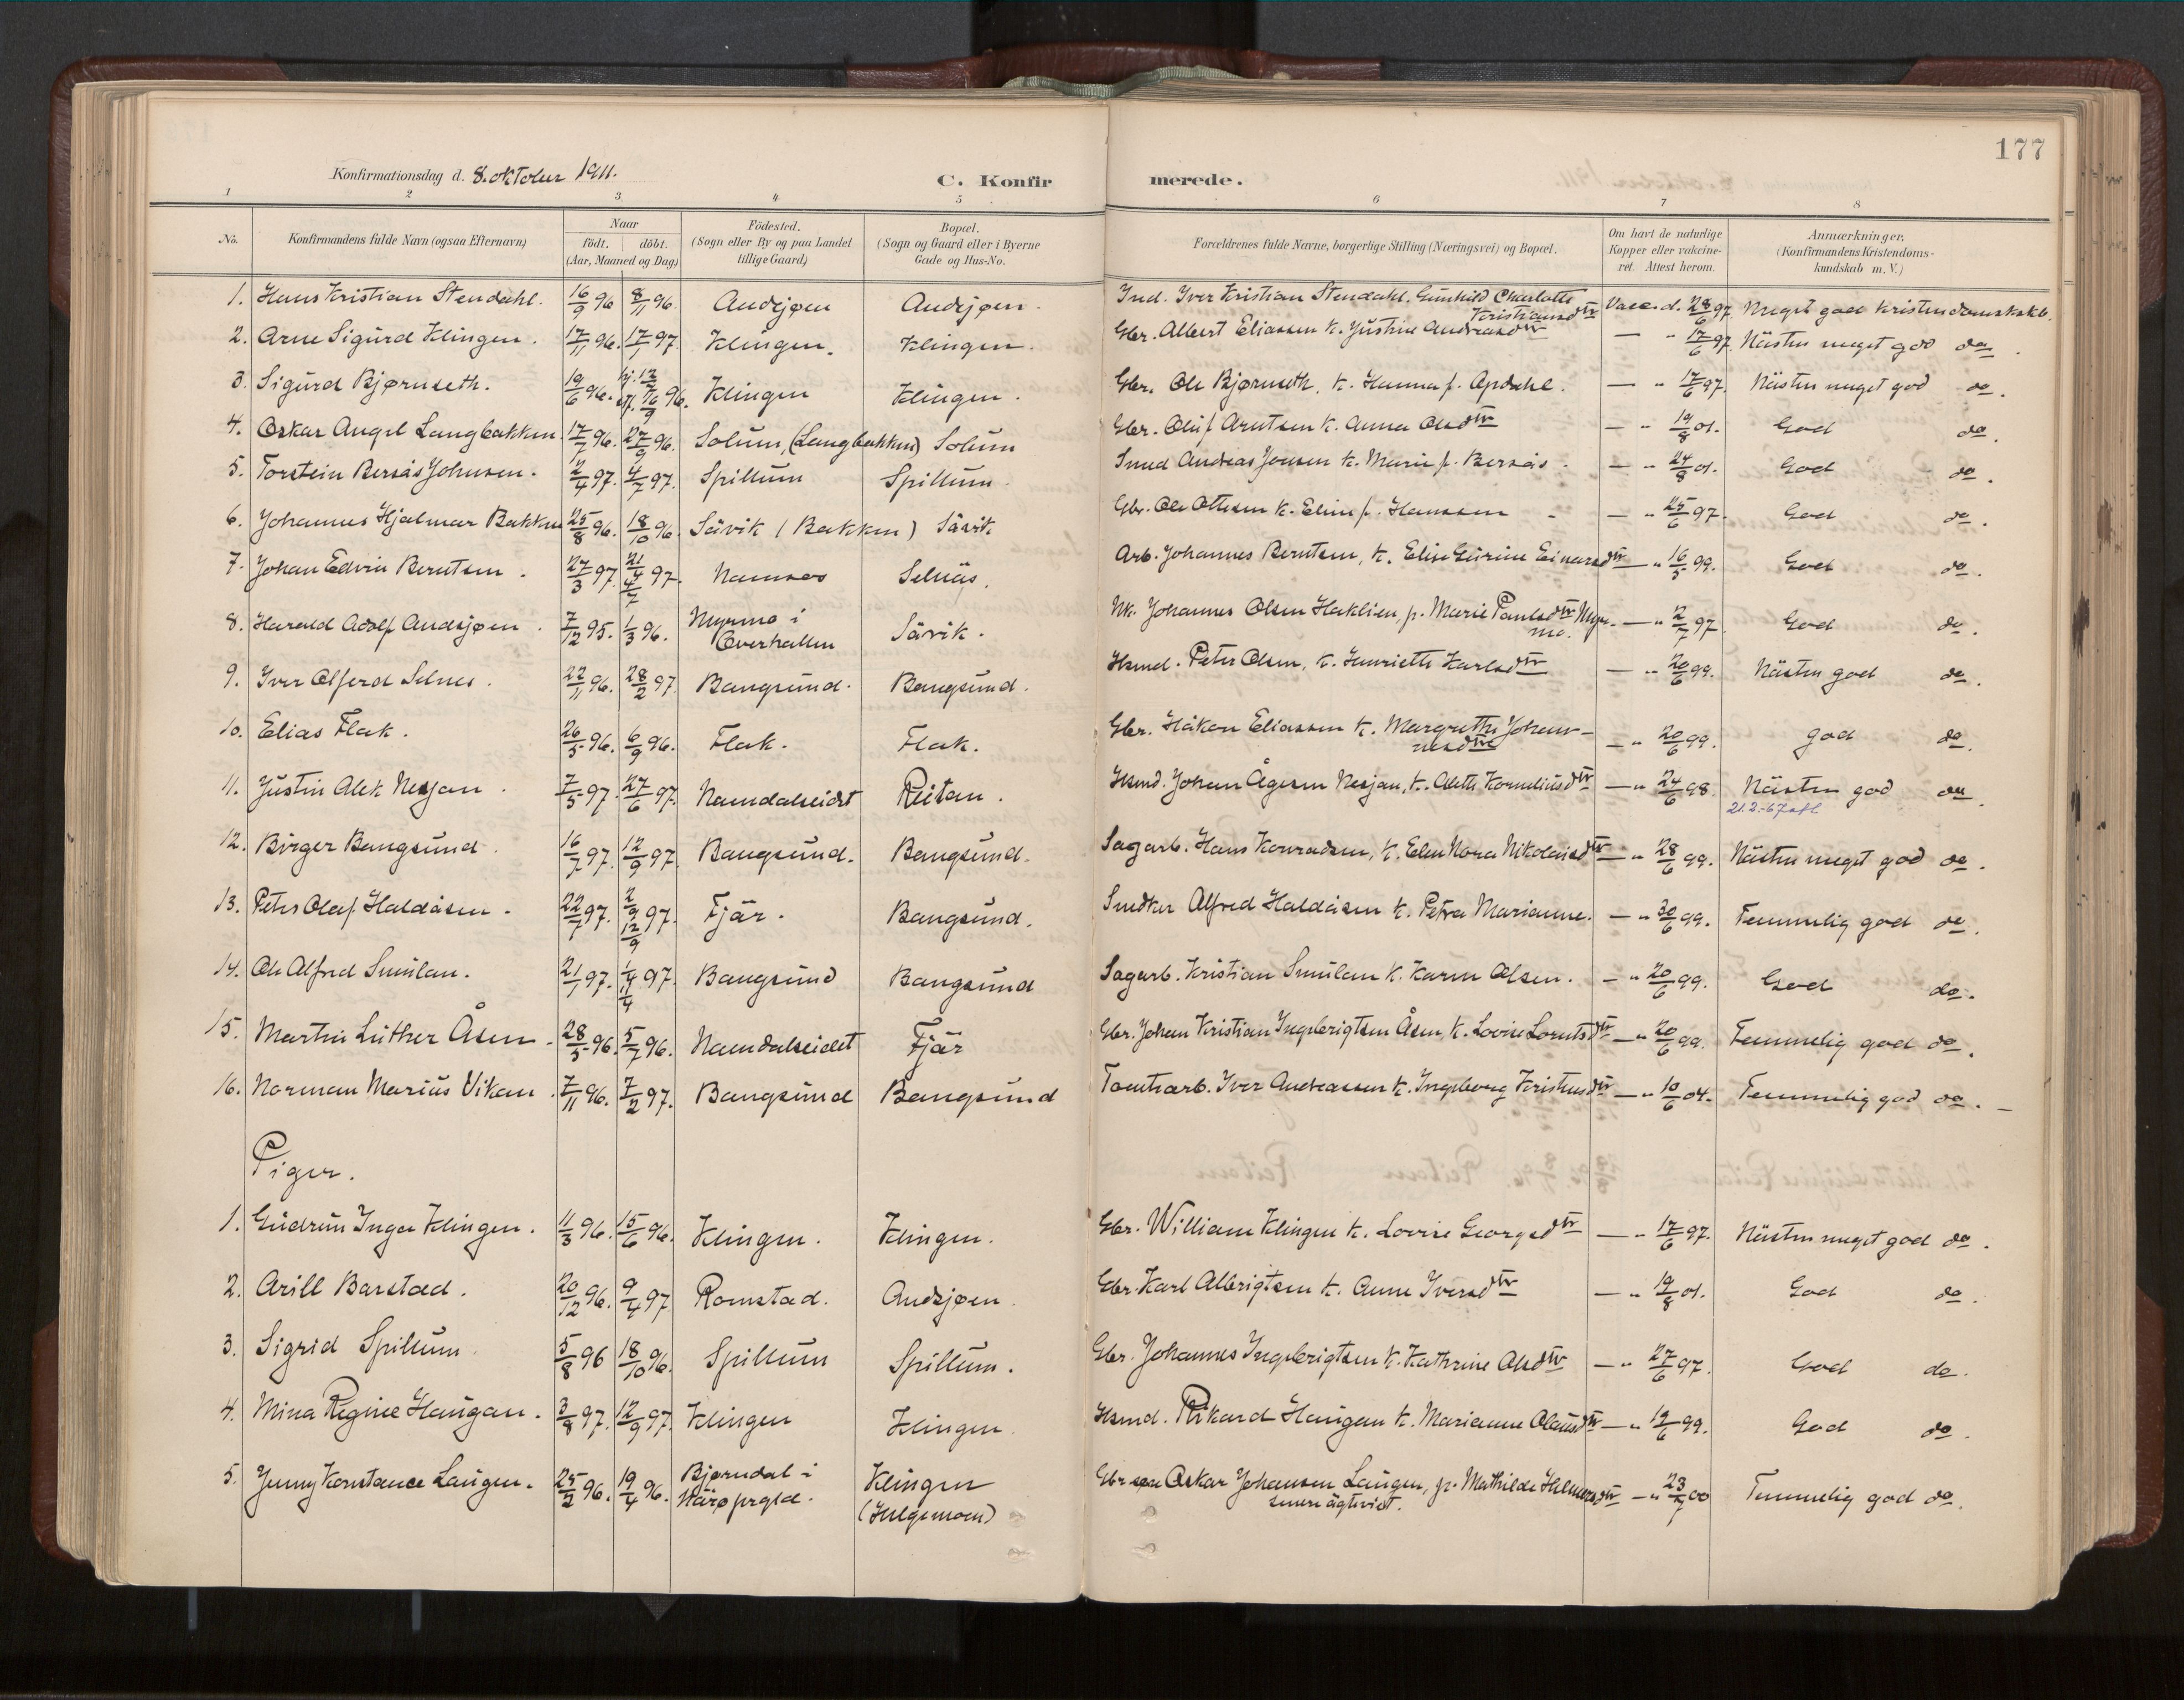 177
Konfirmationsdag d. 8. oktober 1911.
C. Konfirmerede.
1 2 3 4 5 6 7 8
No. Konfirmandens fulde Navn (ogsaa Efternavn) Naar födt. döbt. (Aar, Maaned og Dag) Födested. (Sogn eller By og paa Landet tillige Gaard) Bopæl. (Sogn og Gaard eller i Byerne Gade og Hus-No. Forældrenes fulde Navne, borgerlige Stilling (Næringsvei) og Bopæl. Om havt de naturlige Kopper eller vakcineret. Attest herom. Anmærkninger. (Konfirmandens Kristendomskundskab m. V.)
1. Hans Kristian Stendahl. 16/9 96 8/11 96. Andsjøen Andsjøen. Ind. Iver Kristian Stendahl. Gunhild Charlotte Kristiansdtr Vacc. d. 28/6 97. Meget god Kristendomskskb.
2. Arne Sigurd Klingen. 17/11 96. 17/1 97. Klingen. Klingen. Gbr. Albert Eliassen k. Justine Andreasdtr — " 17/6 97. Nästen meget god do.
3. Sigurd Bjørnseth. 19/6 96. hj. 12/7 st. 6/9 96. Klingen Klingen. Gbr. Ole Bjørnseth, k. Hanna f. Apdahl. — " 17/6 97. Nästen meget god do.
4. Oskar Angel Langbakken 17/7 96. 27/9 96. Solum, (Langbakken) Solum Gbr. Oluf Arntsen k. Anna Olsdtr — " 19/8 01. God do.
5. Torstein Bersås Johnsen. 2/4 97. 4/7 97. Spillum Spillum Smed Andreas Jensen k. Marie f. Bersås. — " 24/8 01. God do.
6. Johannes Hjalmar Bakken 25/8 96. 18/10 96. Sävik (Bakken) Sävik Gbr. Ole Ottesen k. Eline f. Hanssen — " 25/6 97. God do.
7. Johan Edvin Berntsen. 27/3 97. 21/4 4/7 97. Namsos Selnäs. Arb. Johannes Berntsen, k. Elise Gurine Einarsdtr — " 16/5 99. God do.
8. Harald Adolf Andsjøen. 7/12 95. 1/3 96. Myrmo i Overhallen Sävik. Uk. Johannes Olsen Haklien, p. Marie Paulsdtr Myrmo. — " 2/7 97 God do.
9. Iver Alferd Selnes. 22/11 96. 28/2 97. Bangsund. Bangsund. Hsmd. Peter Olsen, k. Henriette Karlsdtr — " 20/6 99. Nästen god do.
10. Elias Flak. 26/5 96. 6/9 96. Flak. Flak. Gbr. Håkon Eliassen k. Margrethe Johannesdtr — " 20/6 99. god do.
11. Justin Alek Nesjan. 7/5 97. 27/6 97. Namdalseidet Reitan. Hsmd. Johan Ågesen Nesjan, k. Alette Korneliusdtr — " 24/6 98. Nästen god do.
12. Birger Bangsund. 16/7 97. 12/9 97. Bangsund. Bangsund. Sagarb. Hans Konradsen, k. Elen Nora Nikolaisdtr — " 28/6 99. Nästen meget god do.
13. Peter Olaf Haldåsen. 22/7 97. 2/9 12/9 97. Fjär. Bangsund. Snedker Alfred Haldåsen k. Petra Marianne. — " 30/6 99. Temmelig god do.
14. Ole Alfred Smulan. 21/1 97. 1/4 11/4 97. Bangsund Bangsund Sagarb. Kristian Smulan k. Karen Olsen. — " 20/6 99. God do.
15. Martin Luther Åsen. 28/5 96. 5/7 96. Namdalseidet Fjär Gbr. Johan Kristian Ingebrigtsen Åsen, k. Lovise Lorntsdtr — " 20/6 99. Temmelig god do.
16. Norman Marius Vikan. 7/11 96. 7/2 97. Bangsund Bangsund Tomtearb. Iver Andreassen k. Ingeborg Kristensdtr — " 10/6 04. Temmelig god do. —
Piger.
1. Gudrun Inga Klingen. 11/3 96. 15/6 96. Klingen. Klingen. Gbr. William Klingen k. Lovise Georgsdtr — " 17/6 97. Nästen meget god do.
2. Arill Barstad. 20/12 96. 9/4 97 Romstad. Andsjøen. Gbr. Karl Albrigtsen k. Anne Iversdtr — " 19/8 01. God do.
3. Sigrid Spillum 5/8 96 18/10 96. Spillum Spillum. Gbr. Johannes Ingebrigtsen k. Kathrine Olsdtr — " 27/6 97. God do.
4. Mina Regine Haugan. 3/8 97. 12/9 97. Klingen Klingen Hsmd. Rikard Haugan k. Marianne Olausdtr — " 19/6 99. God do.
5. Jenny Konstance Laugen. 25/2 96. 19/4 96. Bjørndal i Närø prgld. Klingen (Helgemoen) Gbr. Oskar Johansen Laugen, p. Mathilde Helmersdtr senere ägteviet. — " 23/7 00 Temmelig god do.